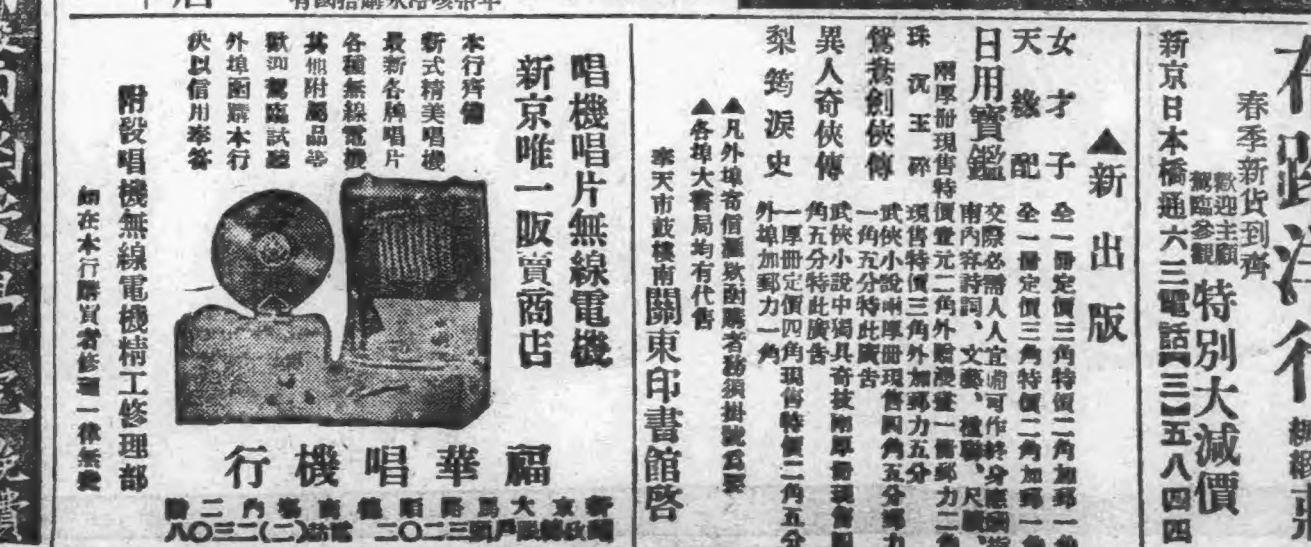 綢緞京
春季新貨到齊
歡迎主顧
駕臨參觀
特別大減價
新京日本橋通六三電話【三】五八四四
▲新出版
女才子
全一冊定價三角特價二角加郵一角
天緣配
全一冊定價三角特價二角加郵一角
日用寶鑑
交際必需人人宜備可作終身
南內容詩詞、文藝、楹聯、尺牘、
兩厚冊現售特價壹元二角外贈漫畫一冊郵力二角
珠沉玉碎
現售特價三角外加郵力五分
鴛鴦劍俠傳
武俠小說兩厚冊現售四角五分郵力
一角五分特此廣告
異人奇俠傳
武俠小說中獨具奇技兩厚冊現售四
角五分特此廣告
梨筠淚史
一厚冊定價四角現售特價二角五分
外埠加郵力一角
▲凡外埠寄信匯款函購者務須掛號為要
▲各埠大書局均有代售
奉天市鼓樓南關東印書館啓
唱機唱片無線電機
新京唯一販賣商店
本行齊備
新式精美唱機
最新各牌唱片
各種無線電機
其他附屬品等
歡迎駕臨試聽
外埠函購本行
決以信用奉答
附設唱機無線電機精工修理部
如在本行購買者修理一律無費
福華唱機行
新京大馬路